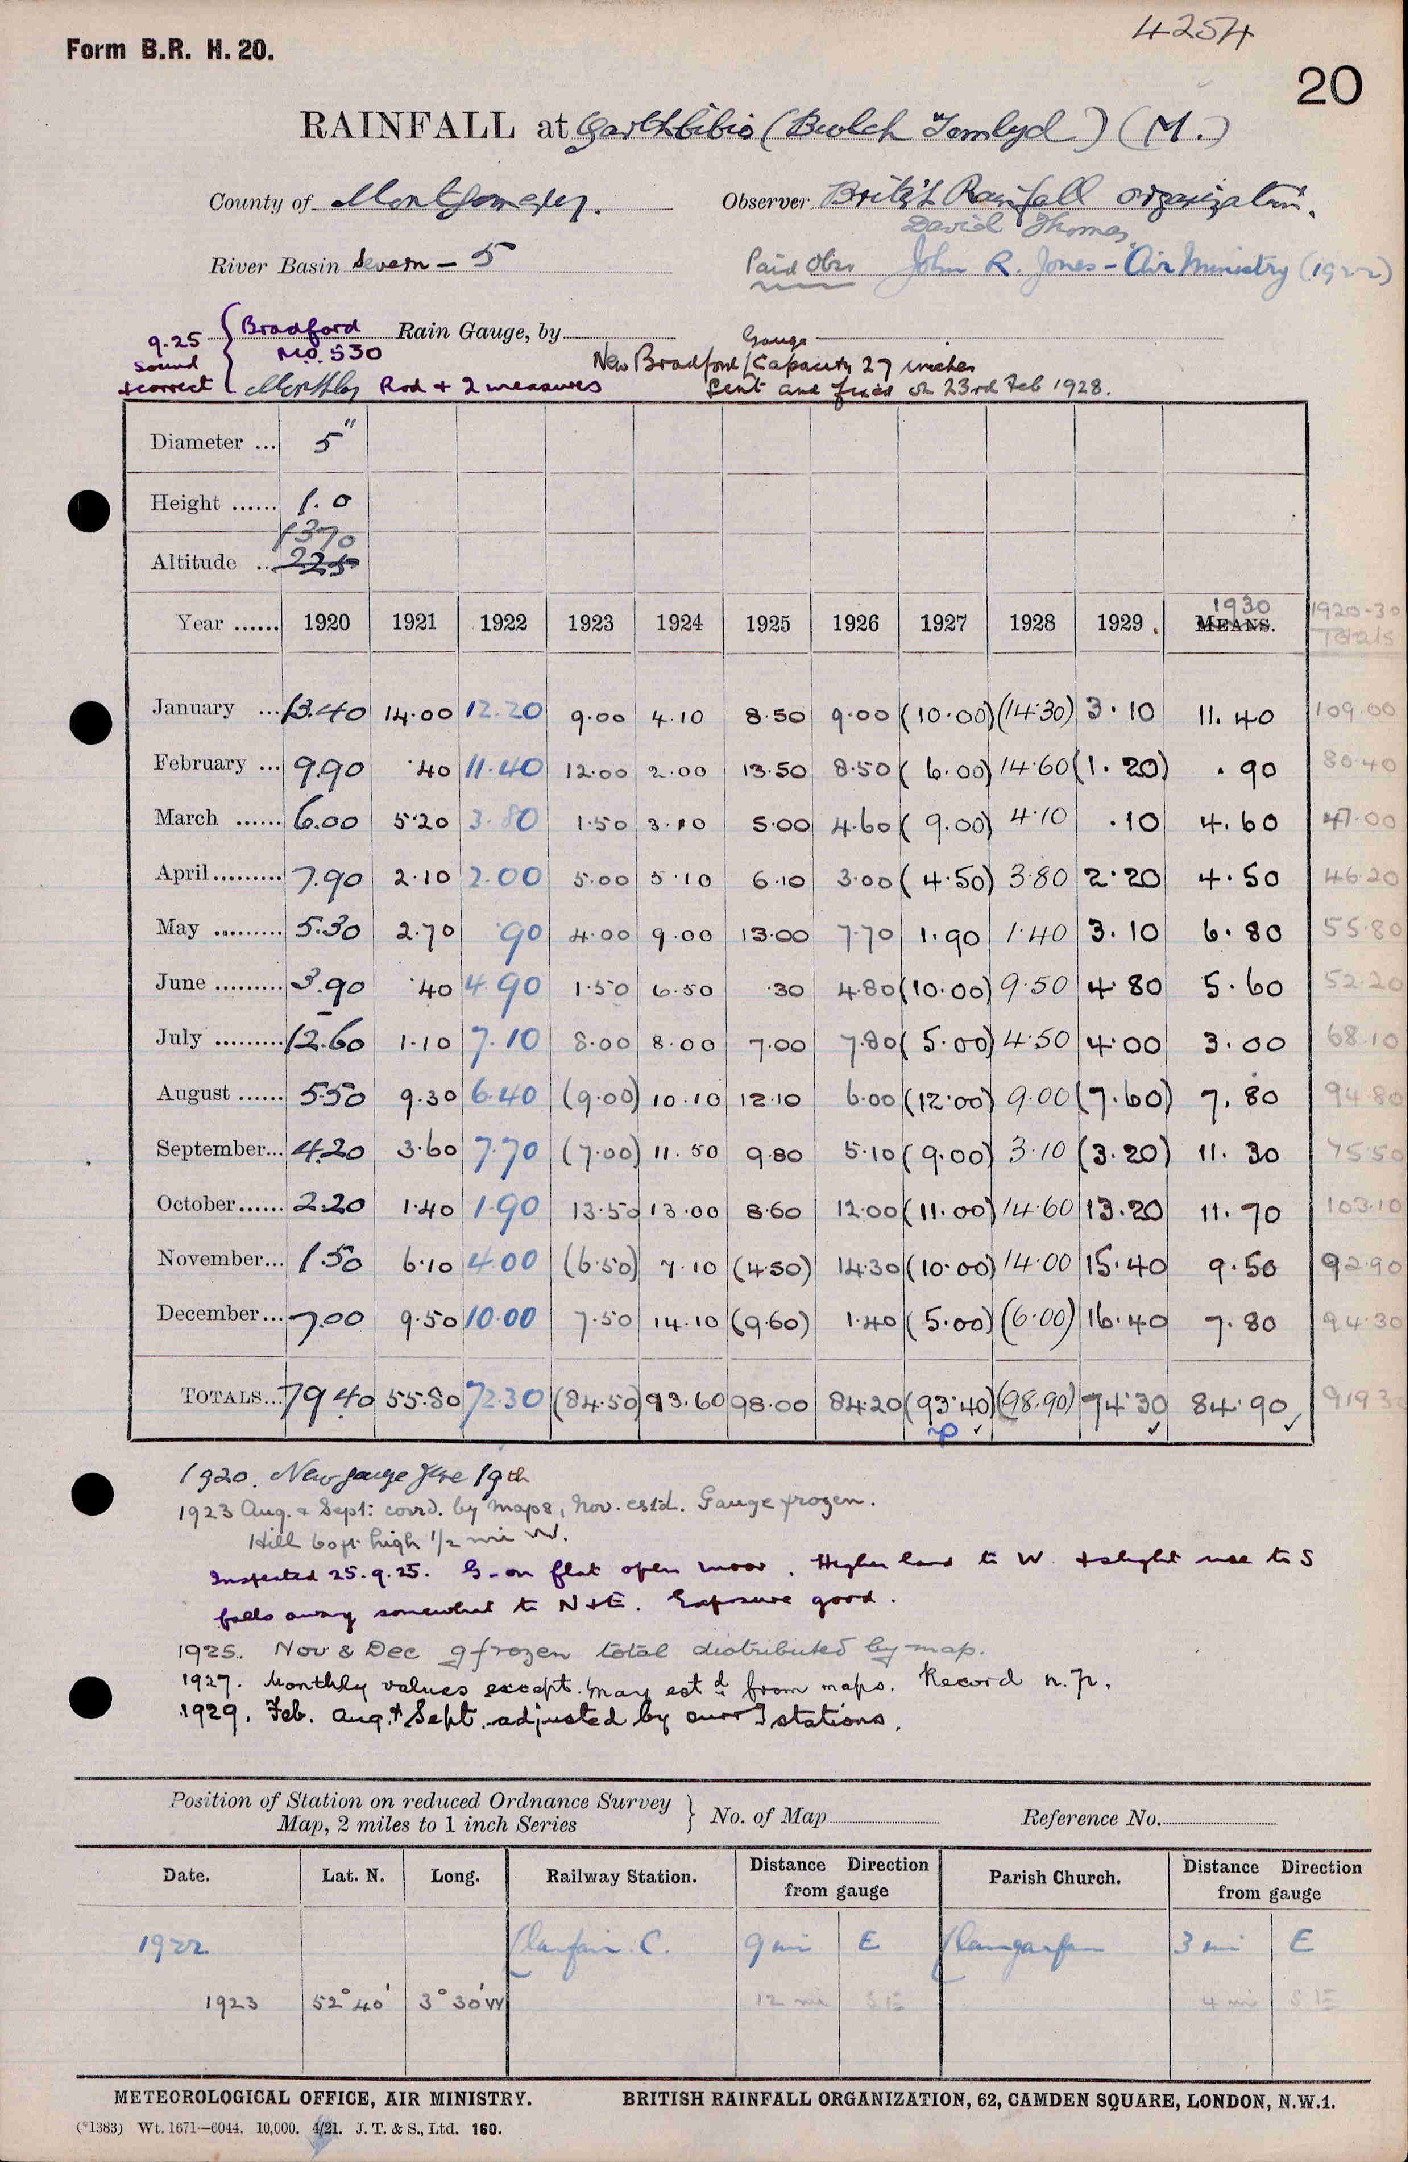 4254
Form B.R. H. 20.
20
RAINFALL at Garthbibio (Bwlch Tomlyd) (M.)
County of Montgomery. Observer British Rainfall Organization.
David Thomas
River Basin Severn - 5 Paid Obsr John R. Jones - Air Ministry (1922)
9.25 sound + correct { Bradford Rain Gauge, by
M.O. 530 New Bradford Gauge Capacity 27 inches
Monthly Rod + 2 measures Sent and fixed on 23rd Feb 1928.
Diameter ... 5"
Height ...... 1.0
1370
Altitude .. 225
1930 1920-30
Year ...... 1920 1921 1922 1923 1924 1925 1926 1927 1928 1929. MEANS. Totals
January ... 13.40 14.00 12.20 9.00 4.10 8.50 9.00 (10.00) (14.30) 3.10 11.40 109.00
February ... 9.90 .40 11.40 12.00 2.00 13.50 8.50 (6.00) 14.60 (1.20) .90 80.40
March ...... 6.00 5.20 3.80 1.50 3.10 5.00 4.60 (9.00) 4.10 .10 4.60 47.00
April......... 7.90 2.10 2.00 5.00 5.10 6.10 3.00 (4.50) 3.80 2.20 4.50 46.20
May ......... 5.30 2.70 .90 4.00 9.00 13.00 7.70 1.90 1.40 3.10 6.80 55.80
June ......... 3.90 .40 4.90 1.50 6.50 .30 4.80 (10.00) 9.50 4.80 5.60 52.20
July ......... 12.60 1.10 7.10 8.00 8.00 7.00 7.80 (5.00) 4.50 4.00 3.00 68.10
August ...... 5.50 9.30 6.40 (9.00) 10.10 12.10 6.00 (12.00) 9.00 (7.60) 7.80 94.80
September... 4.20 3.60 7.70 (7.00) 11.50 9.80 5.10 (9.00) 3.10 (3.20) 11.30 75.50
October...... 2.20 1.40 1.90 13.50 13.00 8.60 12.00 (11.00) 14.60 13.20 11.70 103.10
November... 1.50 6.10 4.00 (6.50) 7.10 (4.50) 14.30 (10.00) 14.00 15.40 9.50 92.90
December... 7.00 9.50 10.00 7.50 14.10 (9.60) 1.40 (5.00) (6.00) 16.40 7.80 94.30
TOTALS... 79.40 55.80 72.30 (84.50) 93.60 98.00 84.20 (93.40) (98.90) 74.30 84.90 919.3
np
1920. New gauge June 19th
1923 Aug. & Sept: corrd. by maps, Nov. estd. Gauge frozen.
Hill 60 ft high 1/2 mi W.
Inspected 25.9.25. G- on flat open moor. Higher land to W. + slight rise to S
falls away somewhat to N + E. Exposure good.
1925. Nov & Dec g frozen total distributed by map.
1927. Monthly values except. May estd. from maps. Record n.p.
1929. Feb. Aug. & Sept. adjusted by surrg stations.
Position of Station on reduced Ordnance Survey Map, 2 miles to 1 inch Series } No. of Map Reference No.
Date. Lat. N. Long. Railway Station. Distance Direction from gauge Parish Church. Distance Direction from gauge
1922 Llanfair. C. 9 mi E Llangarfan 3 mi E
1923 52° 40' 3° 30' W 12 mi SE 4 mi SE
METEOROLOGICAL OFFICE, AIR MINISTRY. BRITISH RAINFALL ORGANIZATION, 62, CAMDEN SQUARE, LONDON, N.W.1.
(*1383) Wt. 1671—6044. 10,000. 4/21. J. T. & S., Ltd. 160.